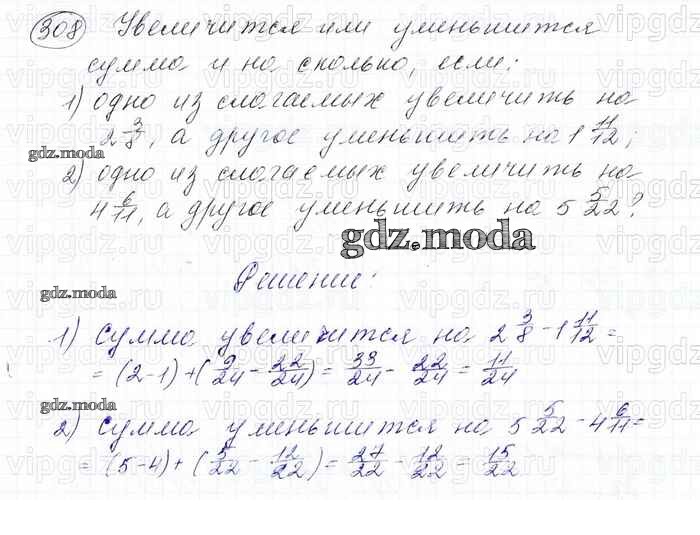 308 Увеличится или уменьшится
сумма и на сколько, если:
1) одно из слагаемых увеличить на
2 3/8, а другое уменьшить на 1 11/12;
gdz.moda
2) одно из слагаемых увеличить на
4 6/11, а другое уменьшить на 5 5/22?
gdz.moda
Решение:
gdz.moda
1) Сумма увеличится на 2 3/8 - 1 11/12 =
= (2-1) + (9/24 - 22/24) = 33/24 - 22/24 = 11/24
gdz.moda
2) Сумма уменьшится на 5 5/22 - 4 6/11 =
= (5-4) + (5/22 - 12/22) = 27/22 - 12/22 = 15/22